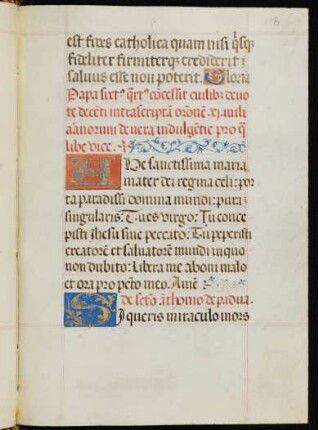 est fides catholica quam nisi q̄sq̄
fideliter firmiterq̄ crediderit :
saluus esse non poterit. Gloria
Papa sixt⁹ q̄rt⁹ cōcessit cuilibꝫ deuo
te decēti infrascriptā oronē .xi. mili
annorum de vera indulgētie pro q̄
libꝫ vice.
AVe sanctissima maria
mater dei regina celi: por
ta paradisi domina mundi: pura
singularis: Tu es virgo: Tu conce
pisti Jhesū sine peccato: Tu peperisti
creatorē et saluatorē mundi in quo
non dubito: libera me ab omni malo
et ora pro pctō meo. Amē:
de sctō āthonio de padua.
Si queris miraculo mors